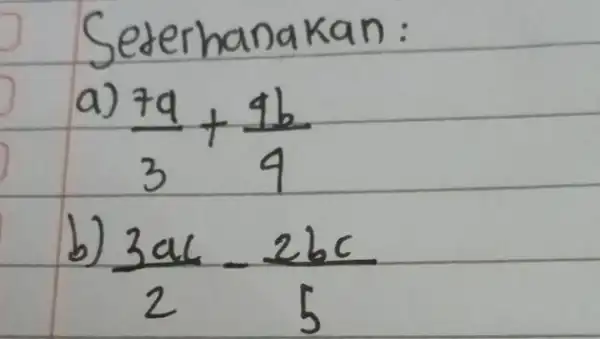 Sederhanakan :
a) 7a/3 + 9b/9
b) 3ac/2 - 2bc/5